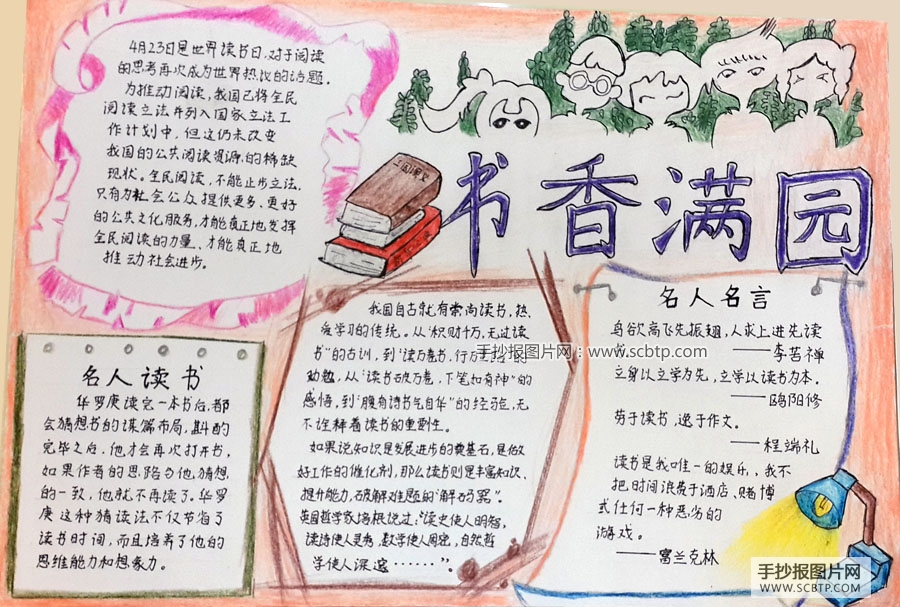 4月23日是世界读书日,对于阅读
的思考再次成为世界热议的话题。
为推动阅读,我国已将全民
阅读立法并列入国家立法工
作计划中,但这仍未改变
我国的公共阅读资源的稀缺
现状。全民阅读,不能止步立法,
只有为社会公众提供更多、更好
的公共文化服务,才能真正地发挥
全民阅读的力量、才能真正地
推动社会进步。
书香满园
名人读书
华罗庚读完一本书后,都
会猜想书的谋篇布局,斟酌
完毕之后,他才会再次打开书,
如果作者的思路与他猜想
的一致,他就不再读了。华罗
庚这种猜读法不仅节省了
读书时间,而且培养了他的
思维能力和想象力。
我国自古就有崇尚读书、热
爱学习的传统。从"积财千万,无过读
书"的古训,到"读万卷书,行万里路"的
劝勉,从"读书破万卷,下笔如有神"的
感悟,到"腹有诗书气自华"的经验,无
不诠释着读书的重要性。
如果说知识是发展进步的奠基石,是做
好工作的催化剂,那么读书则是丰富知识、
提升能力,破解难题的"解码器"。
英国哲学家培根说过:"读史使人明智,
读诗使人灵秀,数学使人周密,自然哲
学使人深邃……"。
手抄报图片网:www.scbtp.com
名人名言
鸟欲高飞先振翅,人求上进先读
——李苦禅
立身以立学为先,立学以读书为本。
——欧阳修
劳于读书,逸于作文。
——程端礼
读书是我唯一的娱乐,我不
把时间浪费于酒店、赌博
式任何一种恶劣的
游戏。
——富兰克林
手抄报图片网
WWW.SCBTP.COM